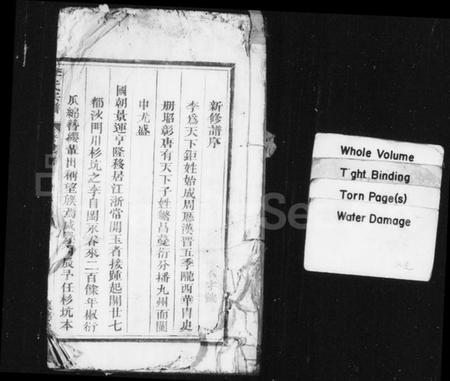 新修譜序
李爲天下鉅姓始成周歷漢晉五季隴西華胄史
冊昭彰唐有天下子姓繁昌蔓衍分播九州而閩
中尤盛
國朝景運亨隆移居江浙常開玉者接踵起閩廿七
都汝門川杉坑之李自閩永春來二百餘年椒衍
瓜綿簪纓輩出稱望族
任杉坑本
Whole Volume
Tight Binding
Torn Page(s)
Water Damage